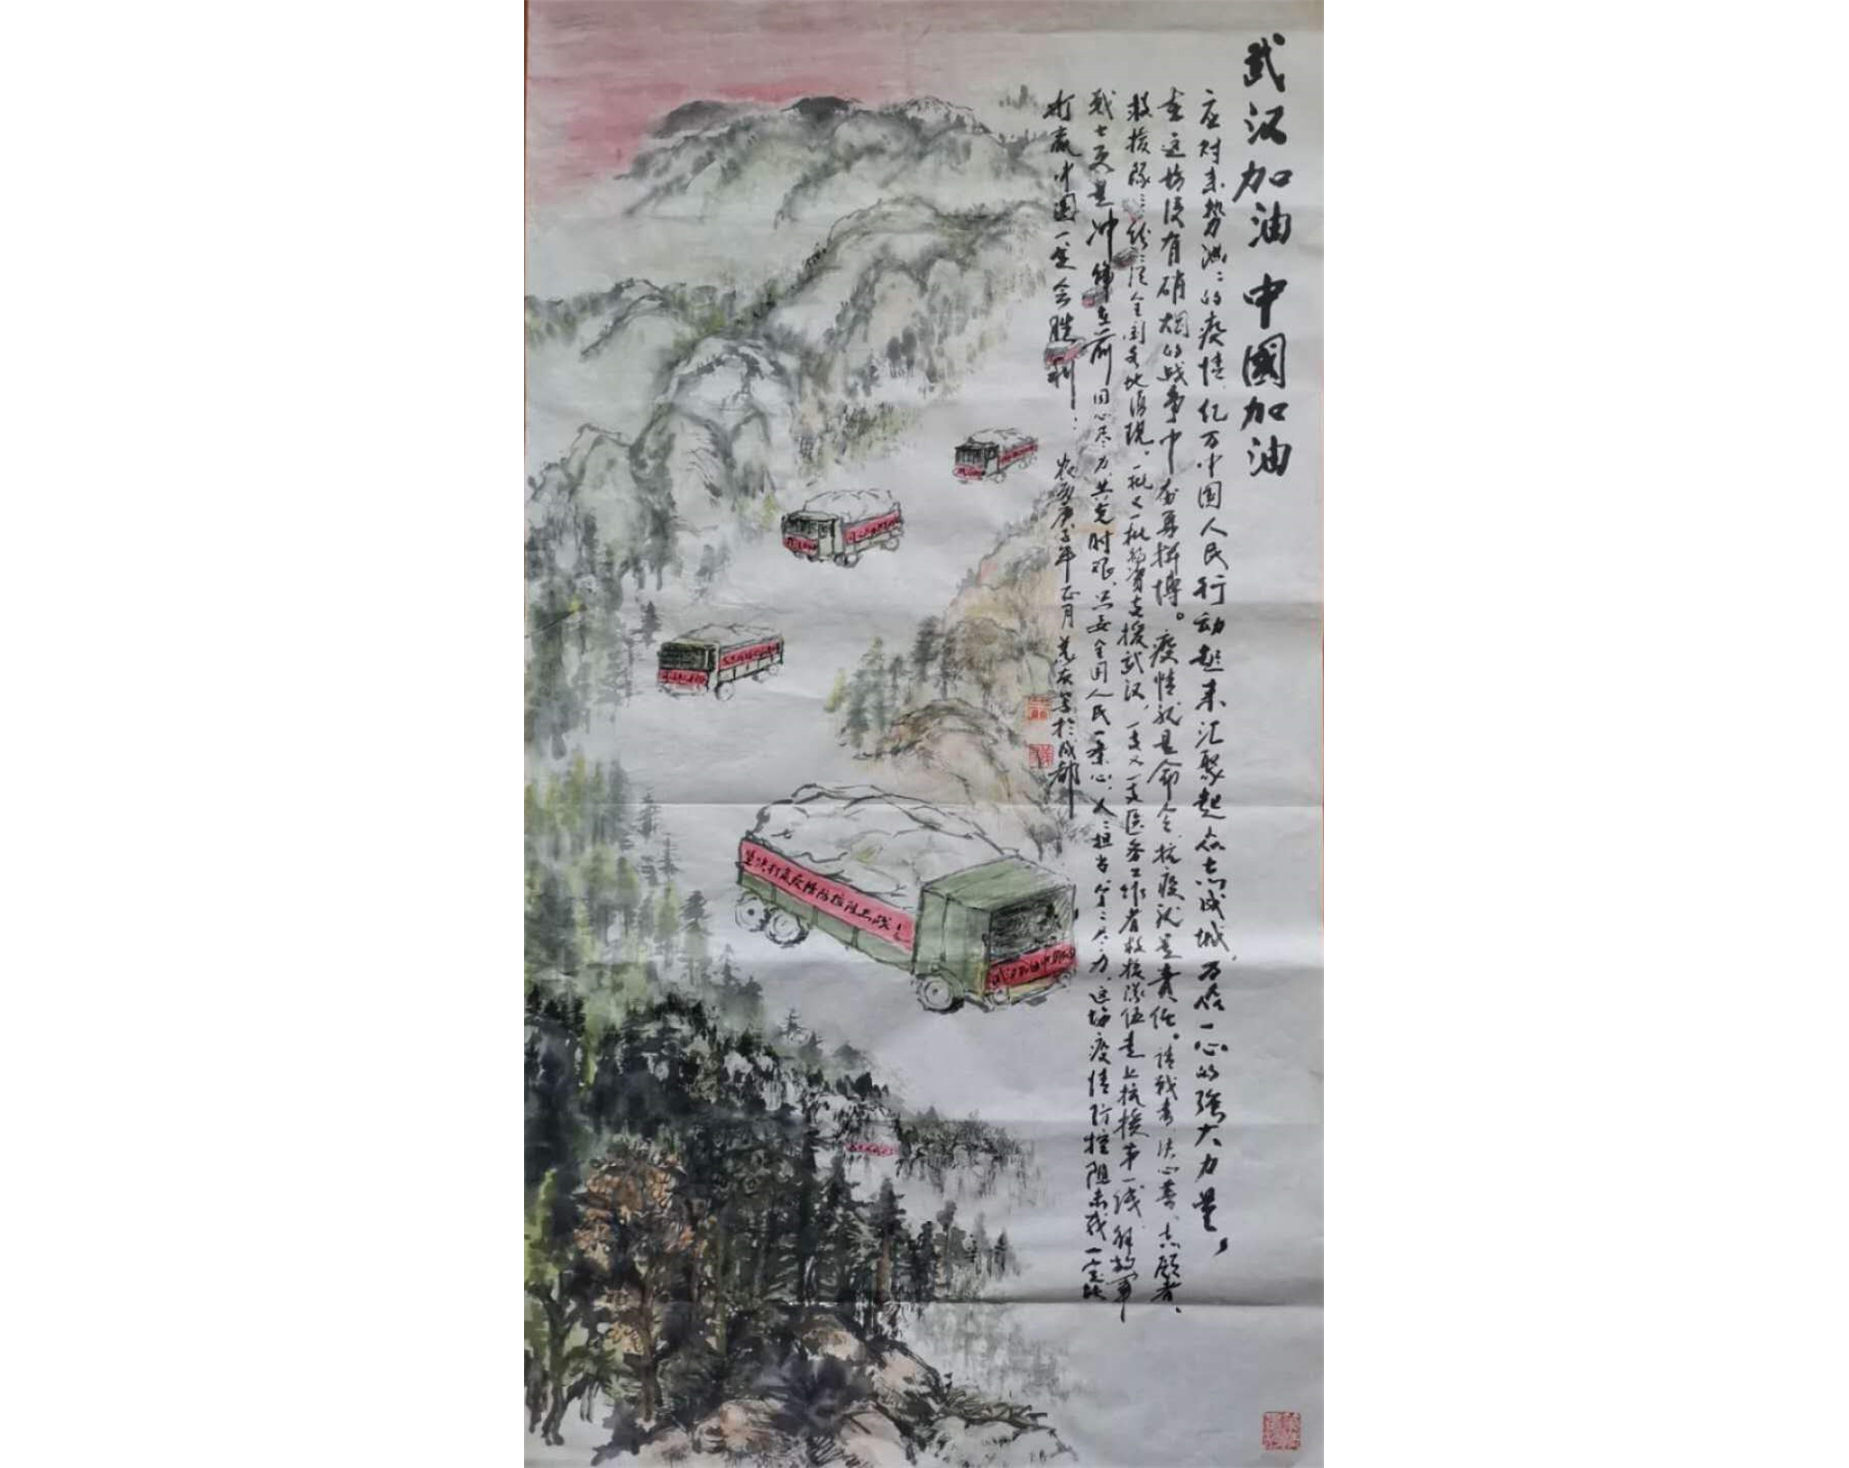 武汉加油 中國加油
应对来势汹〻的疫情,亿万中国人民行动起来汇聚起众志成城,万众一心的强大力量,
在这场没有硝烟的战争中奋勇拼博。疫情就是命令,抗疫就是责任。请战书、决心书、志愿者、
救援队……纷〻从全国各地涌现。一批又一批物资支援武汉,一支又一支医务工作者救援队伍走上抗援第一线,解放军
战士更是冲锋在前 同心尽力,共克时艰,只要全国人民一条心,人〻担当,个〻尽力,这场疫情防控阻击战一定能
打赢,中国一定会胜利!
农历庚子年正月 写於成都
坚决打赢疫情防控阻击战!
武汉加油中国加油